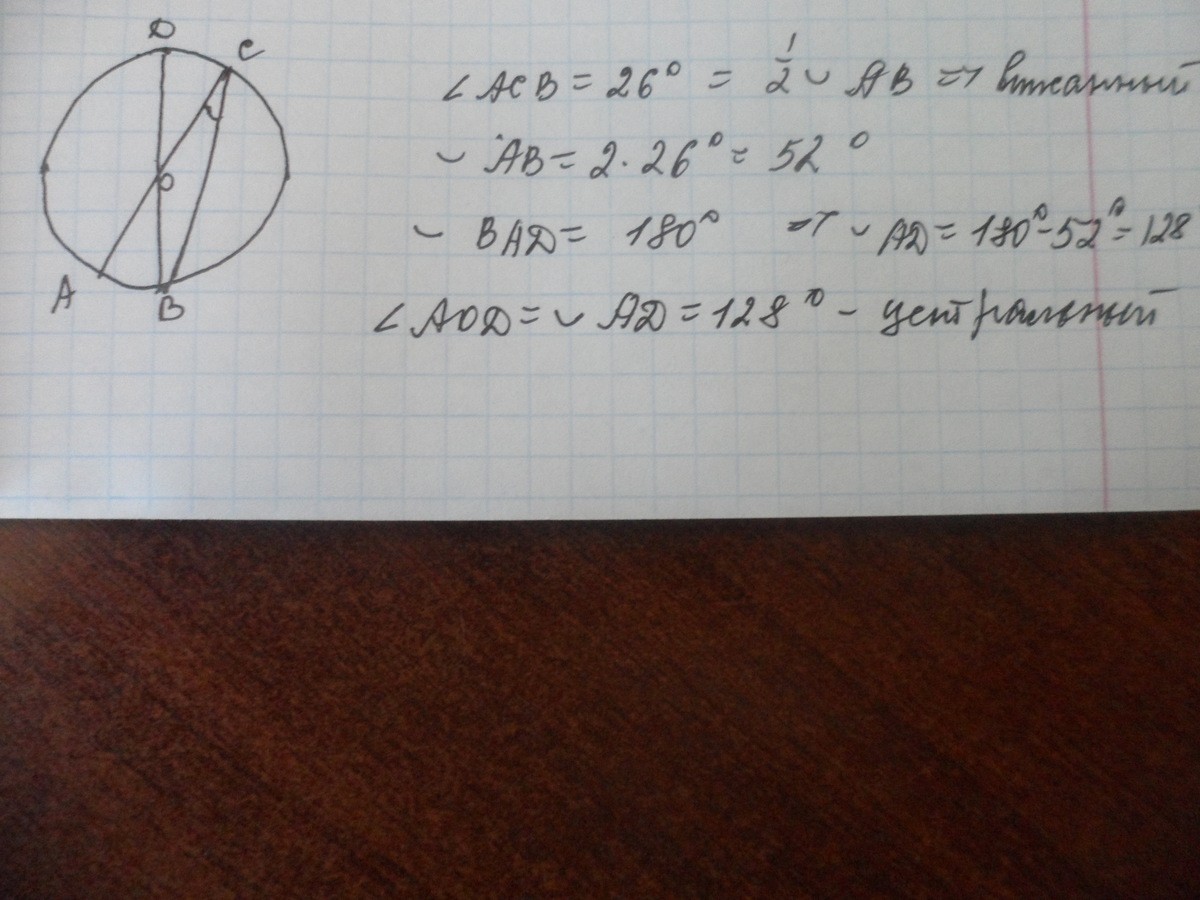 D
C
O
A
B
∠ACB = 26° = 1/2 ◡ AB => вписанный
◡ AB = 2·26° = 52°
◡ BAD = 180° => ◡ AD = 180°-52° = 128
∠AOD = ◡ AD = 128° - центральный